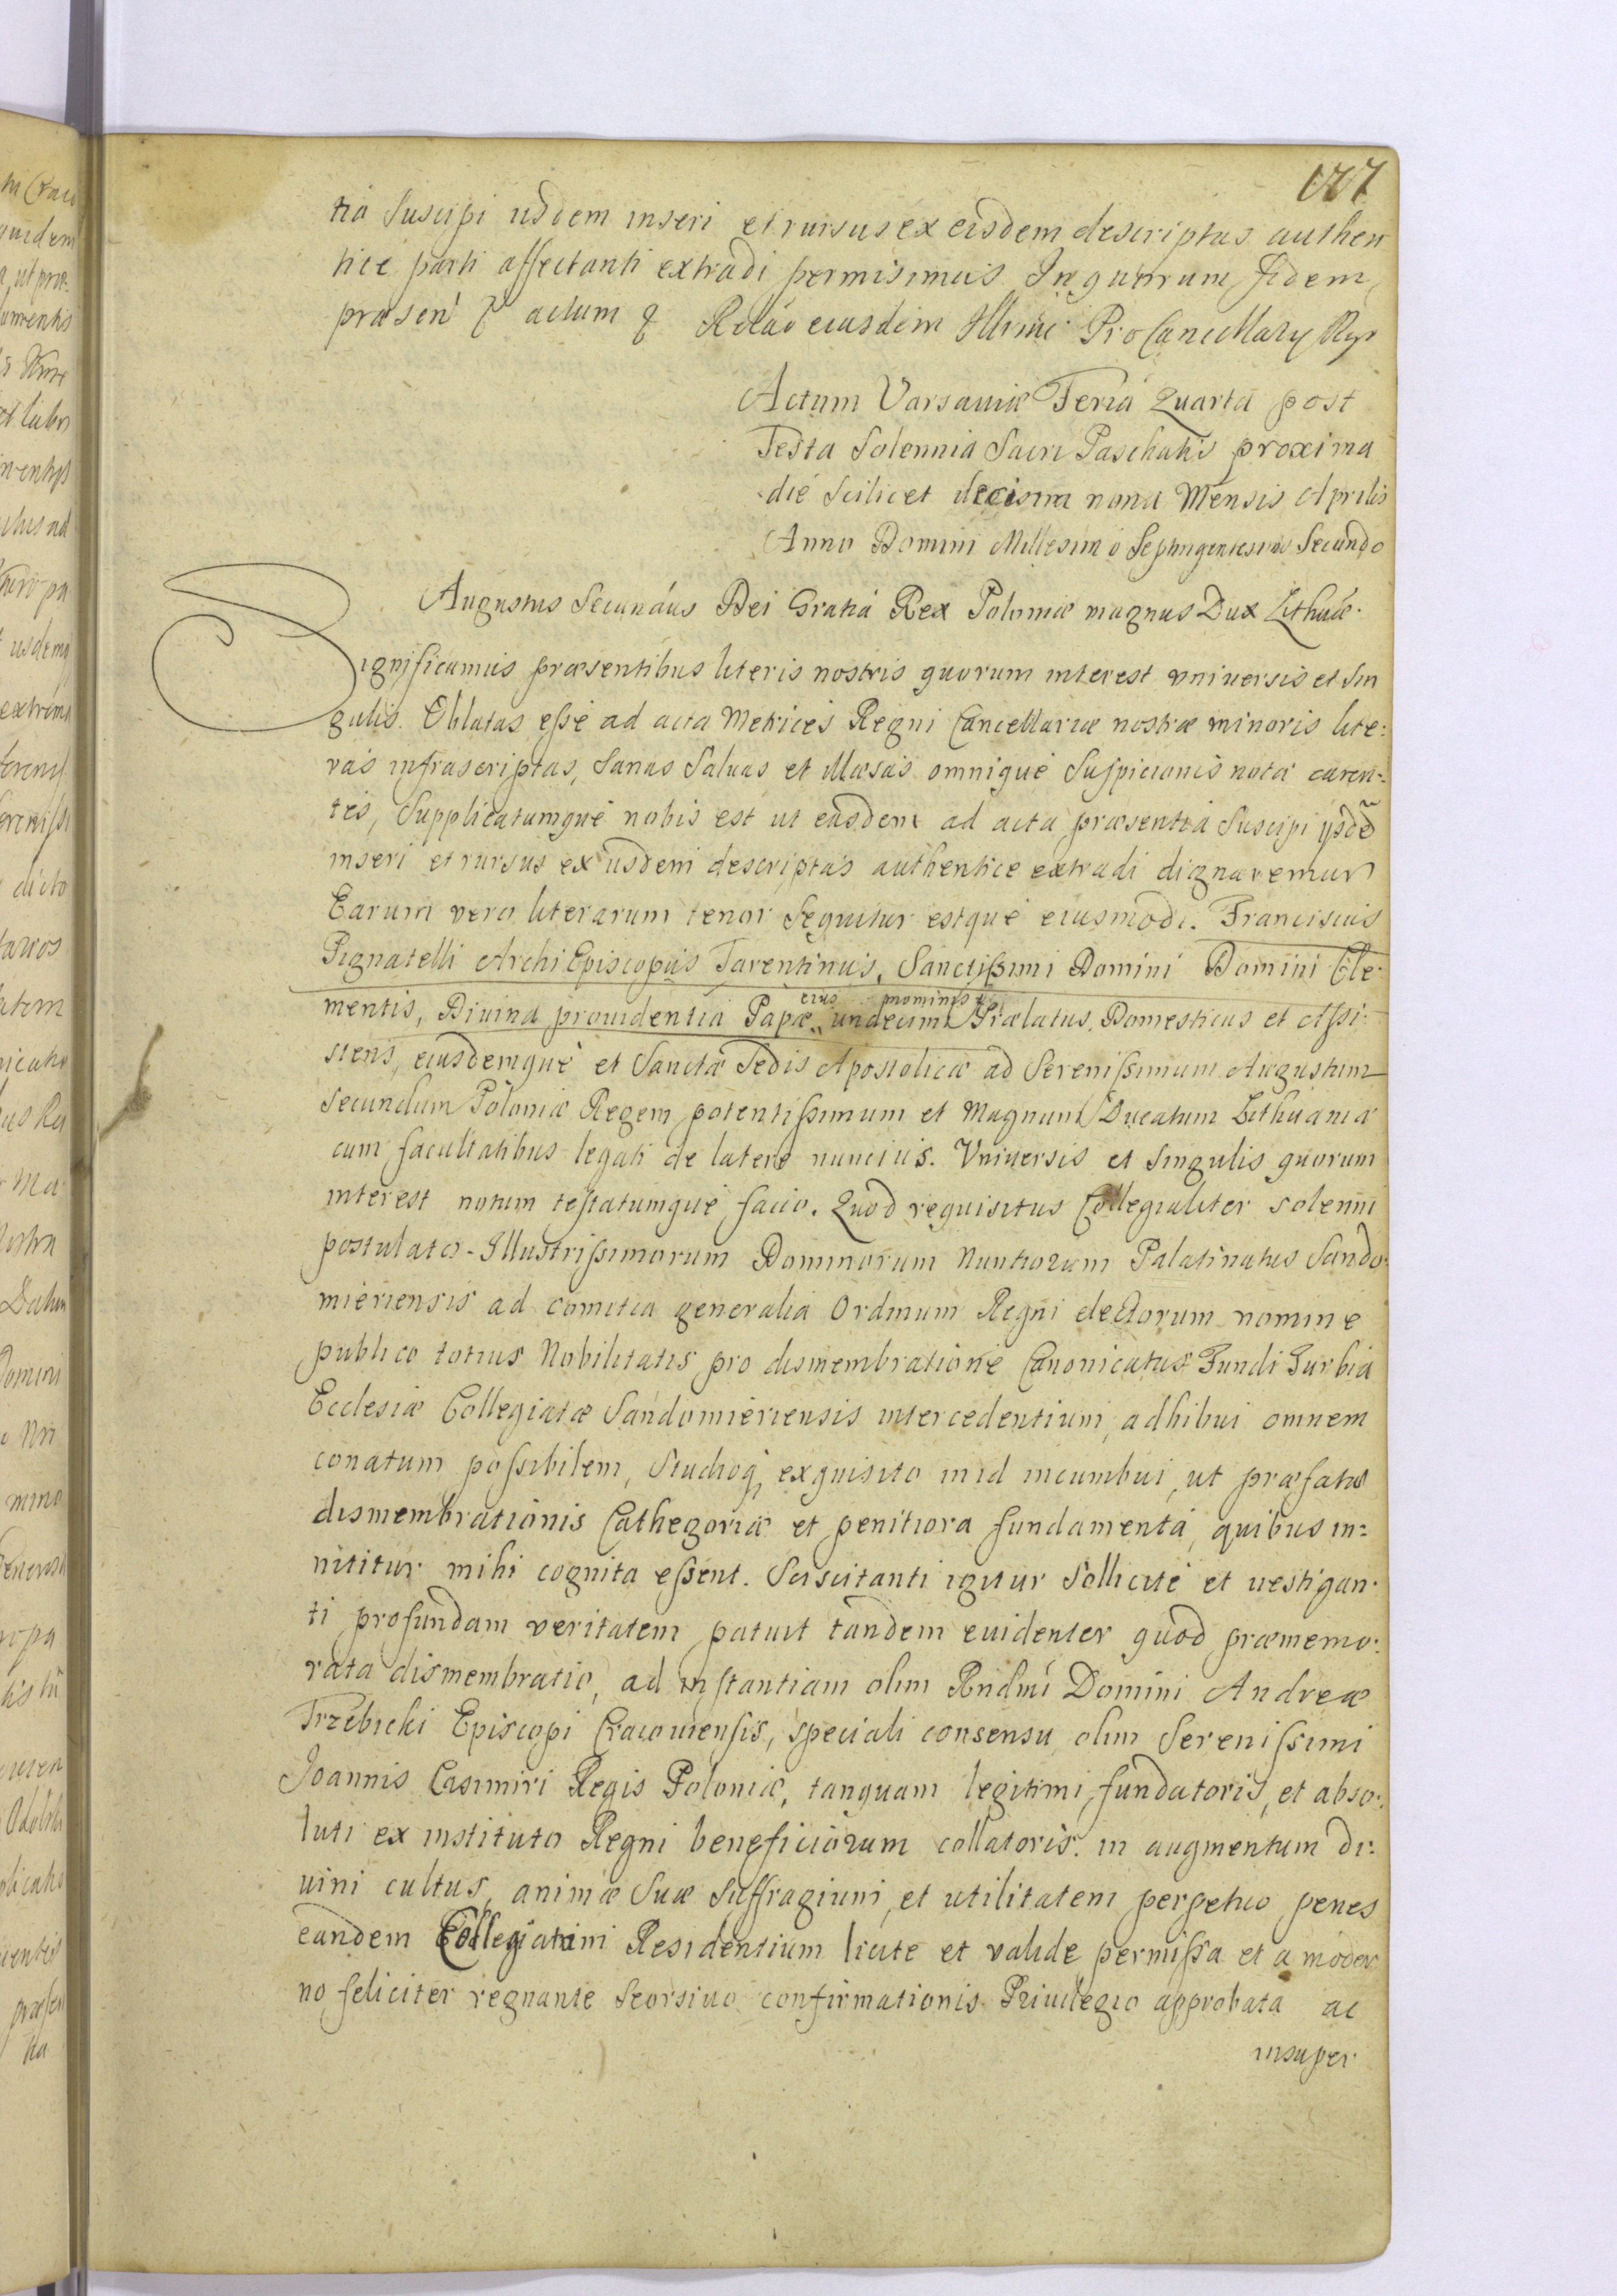 127
tia Suscipi iisdem inseri et rursus ex eisdem descriptas authen
tice parti affectanti extradi permisimus In quorum fidem
præsen̄ actum Relāo eiusdem Illmi ProCancellary Rgi
Actum Varsaviæ Feria Quarta post
Festa Solennia Sacri Paschatis proxima
die Scilicet decisma nona Mensis Aprilis
Anno Domini Millesimo Septingentesimo Secundo
Augustus Secundus Dei Gratiá Rex Poloniæ magnus Dux Lithuae.
Significamus præsentibus literis nostris quorum interest vniuersis et Sin
gulis. Oblatas esse ad acta Metrices Regni Cancellariæ nostræ minoris lite:
ras infrascriptas, Sanas Saluas et illæsas omnique Suspicionis nota caren:
tes, Supplicatumque nobis est ut easdem ad acta præsentia Suscipi ijsdē
inseri et rursus ex iisdem descriptas authentice extradi dignaremur
Earum vero literarum tenor Sequitur estque eiusmodi. Franciscus
Pignatelli ArchiEpiscopus Tarentinus, Sanctissimi Domini Domini Cle
mentis, Diuina prouidentia Papæ eius nominis undecimi Prælatus, Domesticus et Assi:
stens, eiusdemque et Sanctæ Sedis Apostolicæ ad Serenissimum Augustum
Secundum Poloniæ Regem potentissimum et Magnum Ducatum Lithuaniæ
cum facultatibus legati de latere nuncius. Vniuersis et Singulis quorum
interest notum testatumque facio. Quod requisitus Collegialiter solenni
postulato Illustrissimorum Dominorum Nuntiorum Palatinatus Sando
mieriensis ad comitia generalia Ordinum Regni electorum nomine
publico totius Nobilitatis pro dismembratione Canonicatus Fundi Turbia
Ecclesiæ Collegiatæ Sandomieriensis intercedentium, adhibui omnem
conatum possibilem, Studioq exquisito in id incumbui, ut præfatæ
dismembrationis Cathegoriæ et penitiora fundamenta, quibus in:
nititur mihi cognita essent. Sciscitanti igitur Sollicite et vestigan:
ti profundam veritatem patuit tandem euidenter quod præmemo:
rata dismembratio, ad instantiam olim Rndmi Domini Andreæ
Trzebicki Episcopi Cracouiensis, speciali consensu olim Serenissimi
Joannis Casimiri Regis Poloniæ, tanquam legitimi fundatoris, et abso:
luti ex instituto Regni beneficiorum collatoris. in augmentum di:
uini cultus, animæ Suæ Suffragium, et utilitatem perpetuo penes
eandem Collegiatam Residentium licite et valide permissa et a moder
no feliciter regnante Seorsiuo confirmationis Priuilegio approbata ac
insuper